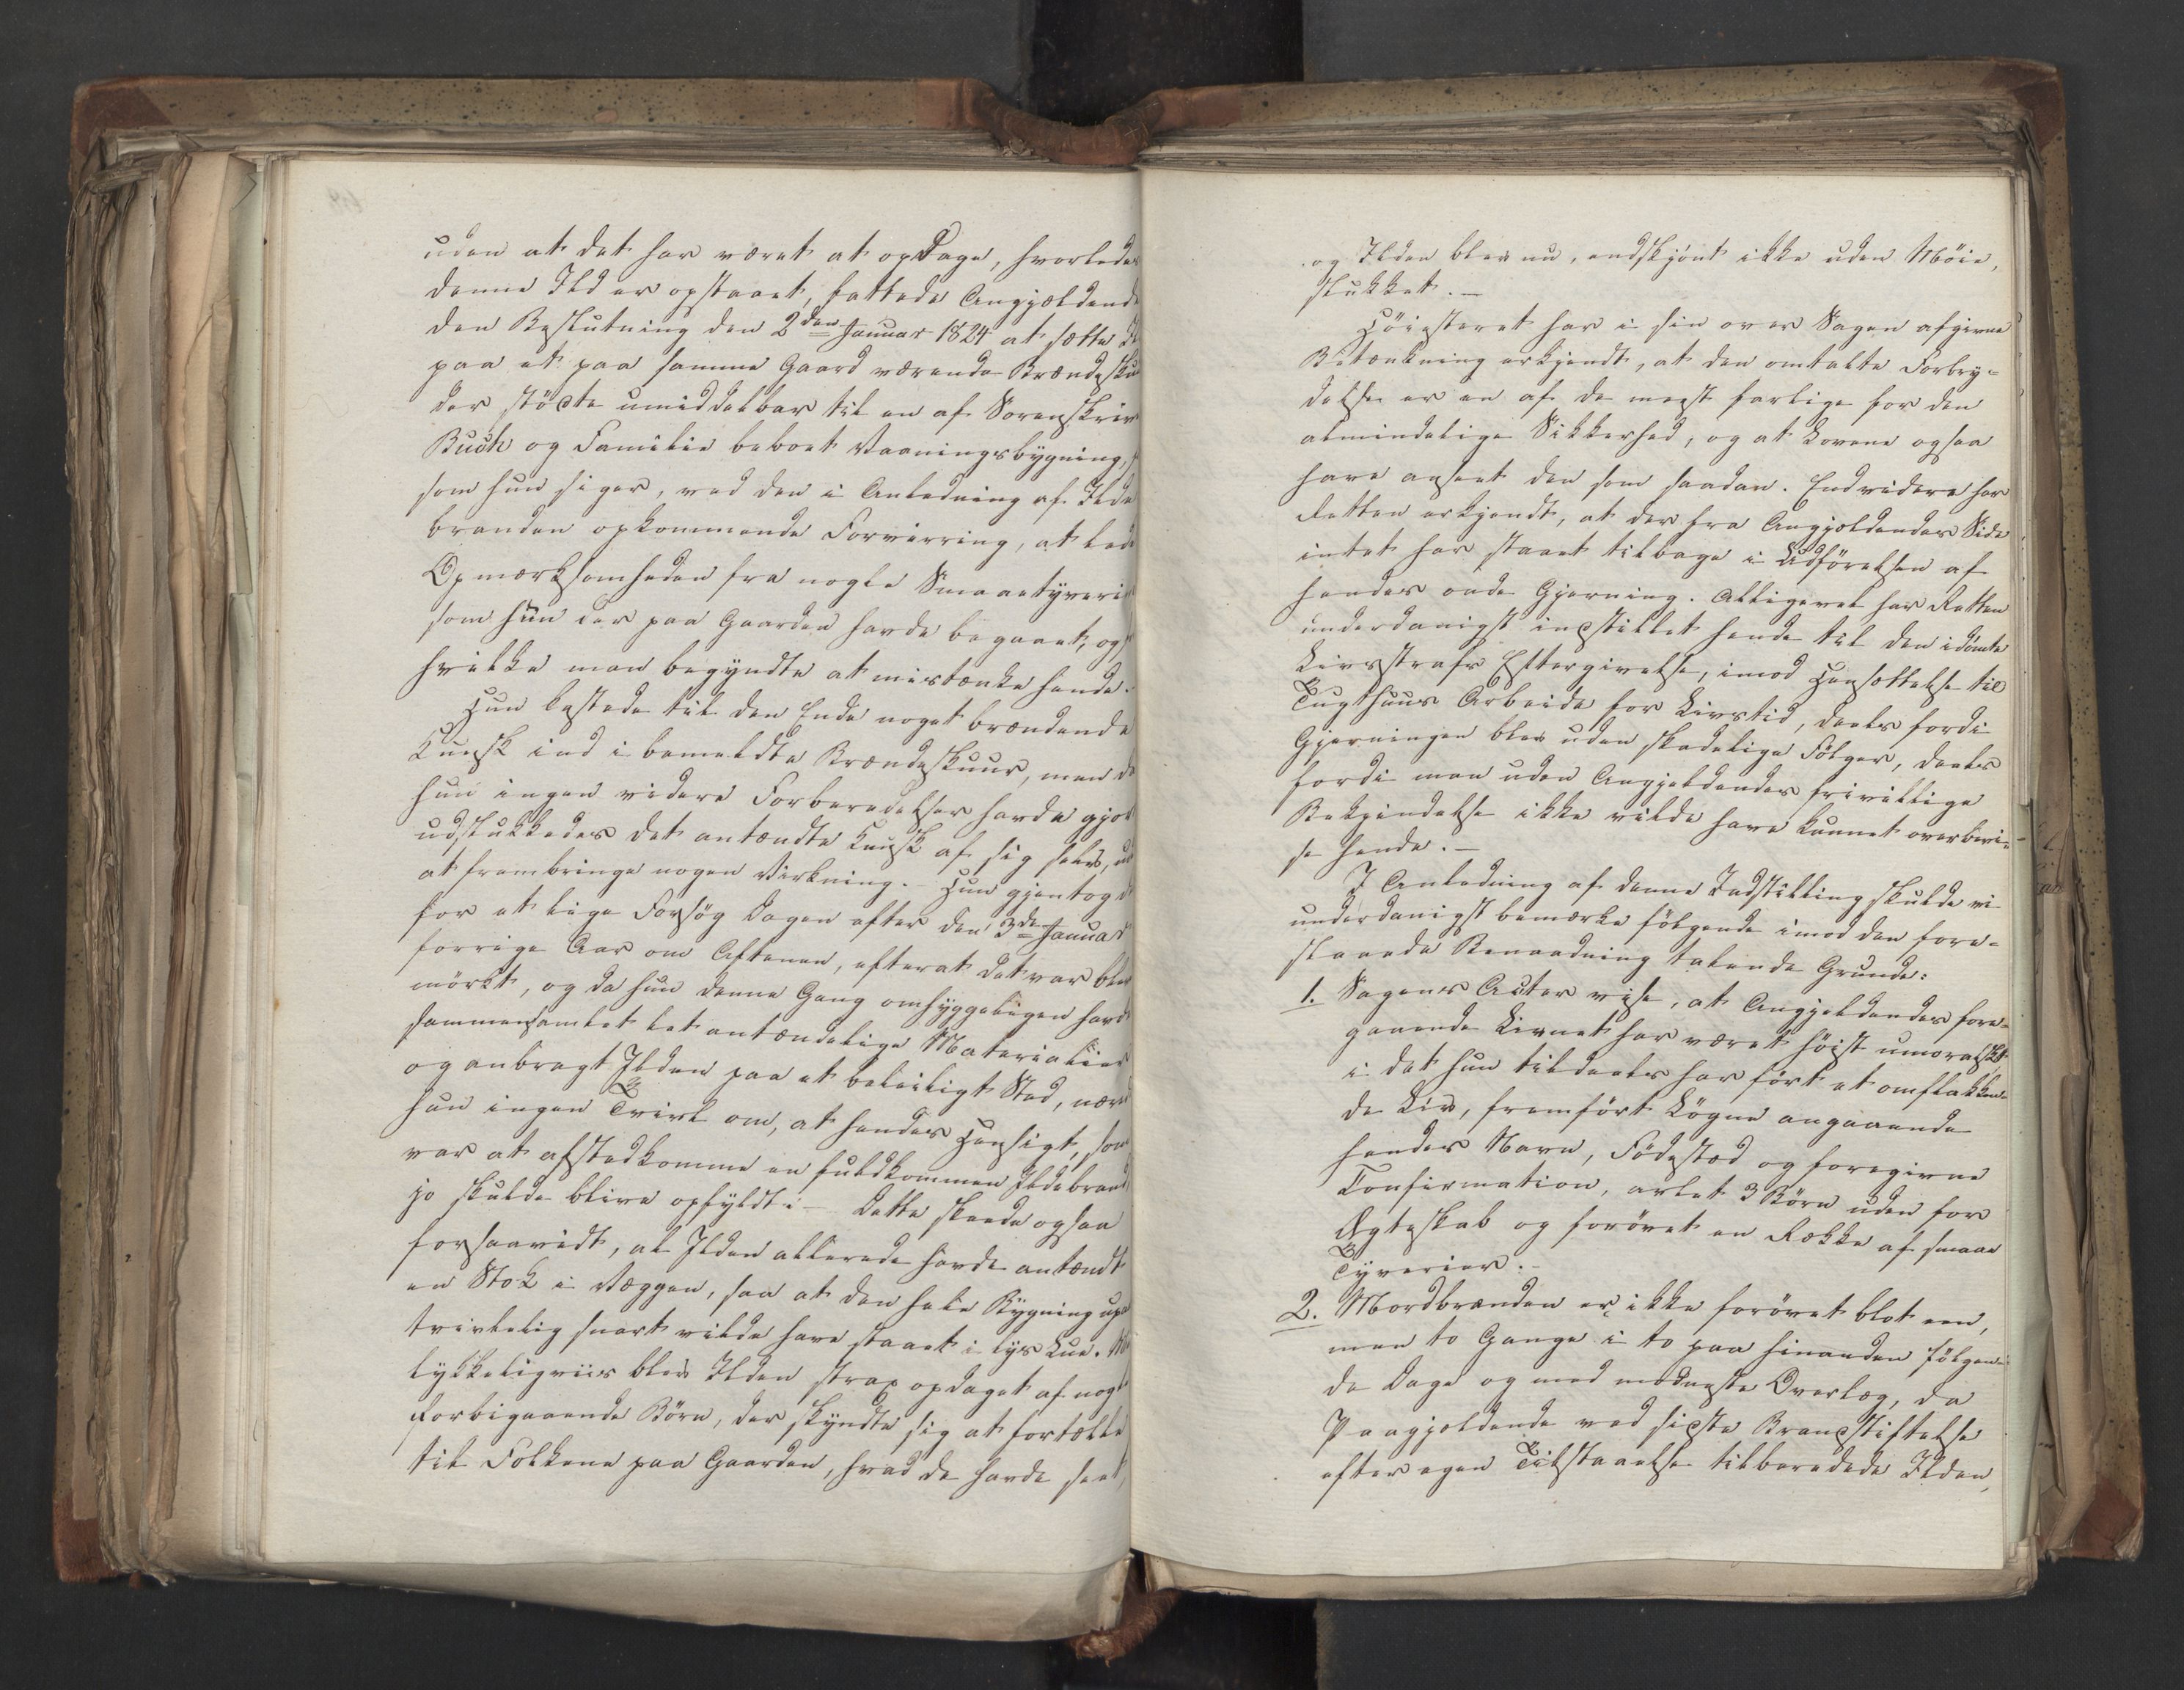 uden at det har været at opdage, hvorledes
denne Ild er opstaaet, fattede Angjældende
den Beslutning den 2den Januar 1824 at sætte
paa et paa samme Gaard værende Brændesku
der stödte umiddelbar til en af Sorenskriv
Buch og Familie beboet Vaaningsbygning,
som hun siger, ved den i Anledning af Ilde
branden opkommende Forvirring, at lede
Opmærksomheden fra nogle Smaaetyverie
som hun der paa Gaarden havde begaaet, og
hvilke man begyndte at mistænke hende.
Hun kastede til den Ende noget brændende
Knusk ind i bemeldte Brændeskuur, men da
hun ingen videre Forberedelser havde gjor
udslukkedes det antændte Knusk af sig selv, ud
at frembringe nogen Virkning. Hun gjentog d
for et lige Forsög Dagen efter den 3de Januar
forrige Aar om Aftenen, efterat det var blev
mörkt, og da hun denne Gang omhyggeligen havde
sammensamlet let antændelige Materialier
og anbragt Ilden paa et beleiligt Sted, nære
hun ingen Tvivl om, at hendes Hensigt, som
var at afstedkomme en fuldkommen Ildebrand
jo skulde blive opfyldt: Dette skeede ogsaa
forsaavidt, at Ilden allerede havde antændt
en Stok i Væggen, saa at den hele Bygning up
tvivlelig snart vilde have staaet i lys Lue.
lykkeligviis blev Ilden strax opdaget af nogle
forbigaaende Börn, der skyndte sig at fortælle
til Folkene paa Gaarden, hvad de havde seet,
og Ilden blev nu, endskjönt ikke uden Möie,
slukket.—
Höiesteret har i sin over Sagen afgivne
Betænkning erkjendt, at den omtalte Forbry-
delse er en af de meest farlige for den
almindelige Sikkerhed, og at Lovene ogsaa
have anseet den som saadan. Endvidere har
Retten erkjendt, at der fra Angjældendes Side
intet har staaet tilbage i Udförelsen af
hendes onde Gjerning. Alligevel har Retten
underdanigst indstillet hende til den idömte
Livsstrafs Eftergivelse, imod Hensættelse til
Tugthuus Arbeide for Livstid, deels fordi
Gjerningen blev uden skadelige Fölger, deels
fordi man uden Angjeldendes frivillige
Bekjendelse ikke vilde have kunnet overbevi-
se hende.—
I Anledning af denne Indstilling skulde vi
underdanigst bemærke fölgende imod den fore-
slaaede Benaadning talende Grunde:
1. Sagens Acter vise, at Angjeldendes fore-
gaaende Levnet har været höist umoralskt
i det hun tildeels har fört et omflakken-
de Liv, fremfört Lögne angaaende
hendes Navn, Födested og foregivne
Confirmation, avlet 3 Börn uden for
Ægteskab og forövet en Række af smaae
Tyverier.—
2. Mordbranden er ikke forövet blot een,
men to Gange i to paa hinanden fölgen-
de Dage og med modneste Overlæg, da
Paagjeldende ved sidste Brandstiftelse
efter egen Tilstaaelse tilberedede Ilden,